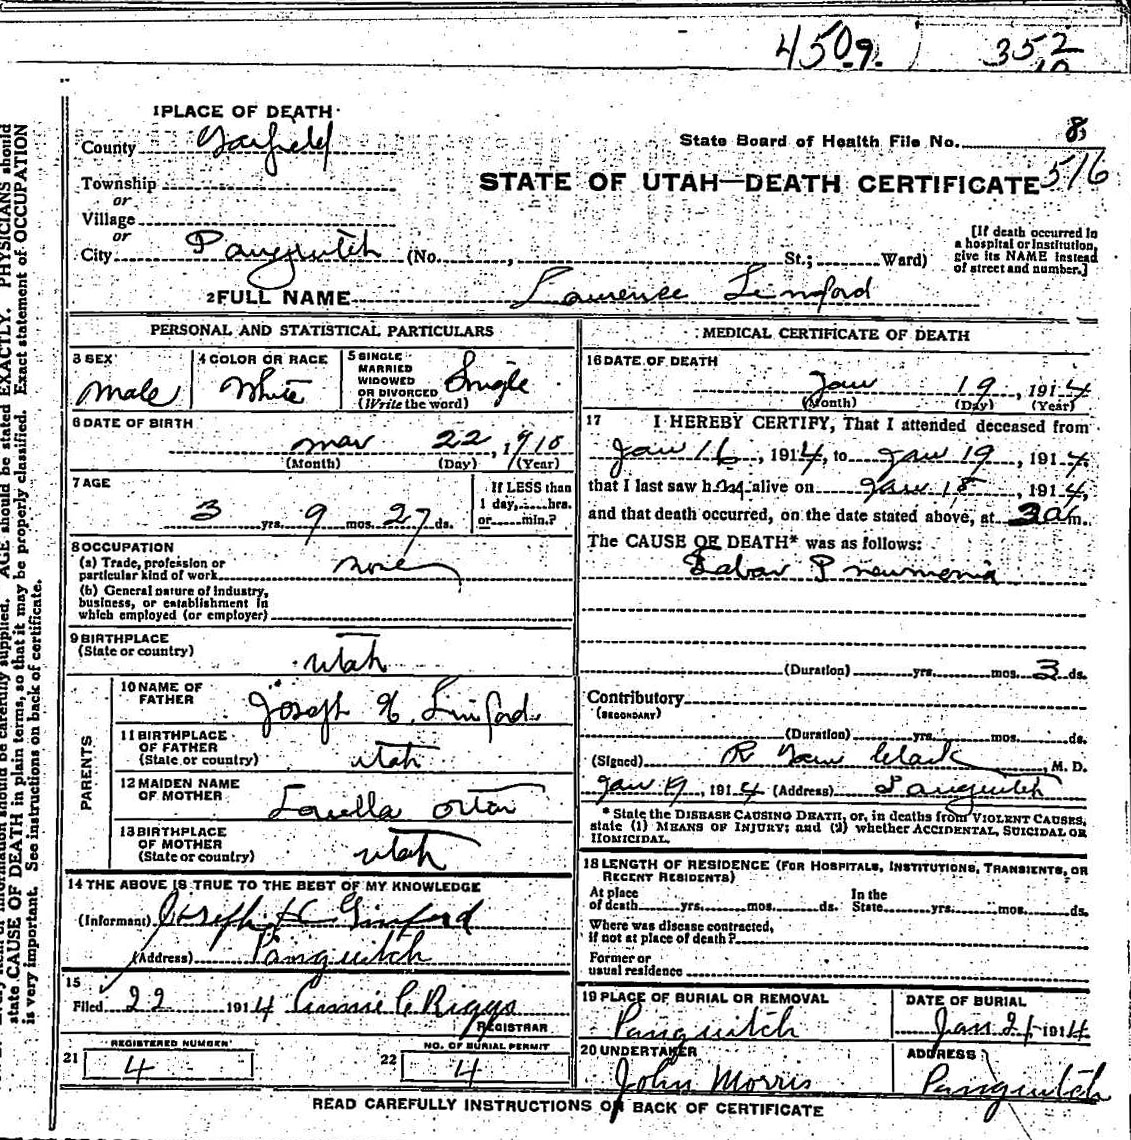 450.9. 352
10
1 PLACE OF DEATH
County Garfield
State Board of Health File No. 8
516
Township
or
STATE OF UTAH—DEATH CERTIFICATE
Village
or
City Panguitch (No. , St.; Ward)
[If death occurred in a hospital or institution, give its NAME instead of street and number.]
2 FULL NAME Lawrence Linford
PERSONAL AND STATISTICAL PARTICULARS
3 SEX
Male
4 COLOR OR RACE
White
5 SINGLE
MARRIED
WIDOWED
OR DIVORCED
(Write the word)
Single
6 DATE OF BIRTH
Mar 22, 1910
(Month) (Day) (Year)
7 AGE
3 yrs. 9 mos. 27 ds.
If LESS than
1 day, hrs.
or min.?
8 OCCUPATION
(a) Trade, profession or
particular kind of work none
(b) General nature of industry,
business, or establishment in
which employed (or employer)
9 BIRTHPLACE
(State or country)
Utah
PARENTS
10 NAME OF
FATHER
Joseph H. Linford
11 BIRTHPLACE
OF FATHER
(State or country) Utah
12 MAIDEN NAME
OF MOTHER
Louella Orton
13 BIRTHPLACE
OF MOTHER
(State or country) Utah
14 THE ABOVE IS TRUE TO THE BEST OF MY KNOWLEDGE
(Informant) Joseph H Linford
(Address) Panguitch
15
Filed 22 1914 Annie C Riggs
REGISTRAR
21 REGISTERED NUMBER
4
22 NO. OF BURIAL PERMIT
4
MEDICAL CERTIFICATE OF DEATH
16 DATE OF DEATH
Jan 19, 1914
(Month) (Day) (Year)
17 I HEREBY CERTIFY, That I attended deceased from
Jan 16, 1914, to Jan 19, 1914,
that I last saw him alive on Jan 18, 1914,
and that death occurred, on the date stated above, at 3 a m.
The CAUSE OF DEATH* was as follows:
Labar Pneumonia
(Duration) yrs. mos. 3 ds.
Contributory
(SECONDARY)
(Duration) yrs. mos. ds.
(Signed) R Clark, M. D.
Jan 19, 1914 (Address) Panguitch
* State the DISEASE CAUSING DEATH, or, in deaths from VIOLENT CAUSES,
state (1) MEANS OF INJURY; and (2) whether ACCIDENTAL, SUICIDAL OR
HOMICIDAL.
18 LENGTH OF RESIDENCE (FOR HOSPITALS, INSTITUTIONS, TRANSIENTS, OR
RECENT RESIDENTS)
At place
of death yrs. mos. ds.
In the
State yrs. mos. ds.
Where was disease contracted,
if not at place of death?
Former or
usual residence
19 PLACE OF BURIAL OR REMOVAL
Panguitch
DATE OF BURIAL
Jan 21 1914
20 UNDERTAKER
John Morris
ADDRESS
Panguitch
READ CAREFULLY INSTRUCTIONS ON BACK OF CERTIFICATE
information should be carefully supplied. AGE should be stated EXACTLY. PHYSICIANS should
state CAUSE OF DEATH in plain terms, so that it may be properly classified. Exact statement of OCCUPATION
is very important. See instructions on back of certificate.